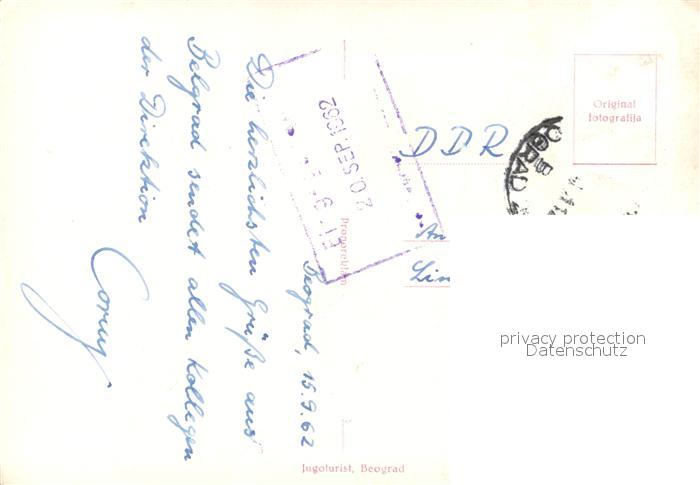 Beograd, 15.9.62
Die herzlichsten Grüße aus
Belgrad sendet allen Kollegen
der Direktion
20. SEP. 1962
DDR
An
Original
fotografija
privacy protection
Datenschutz
Jugoturist, Beograd